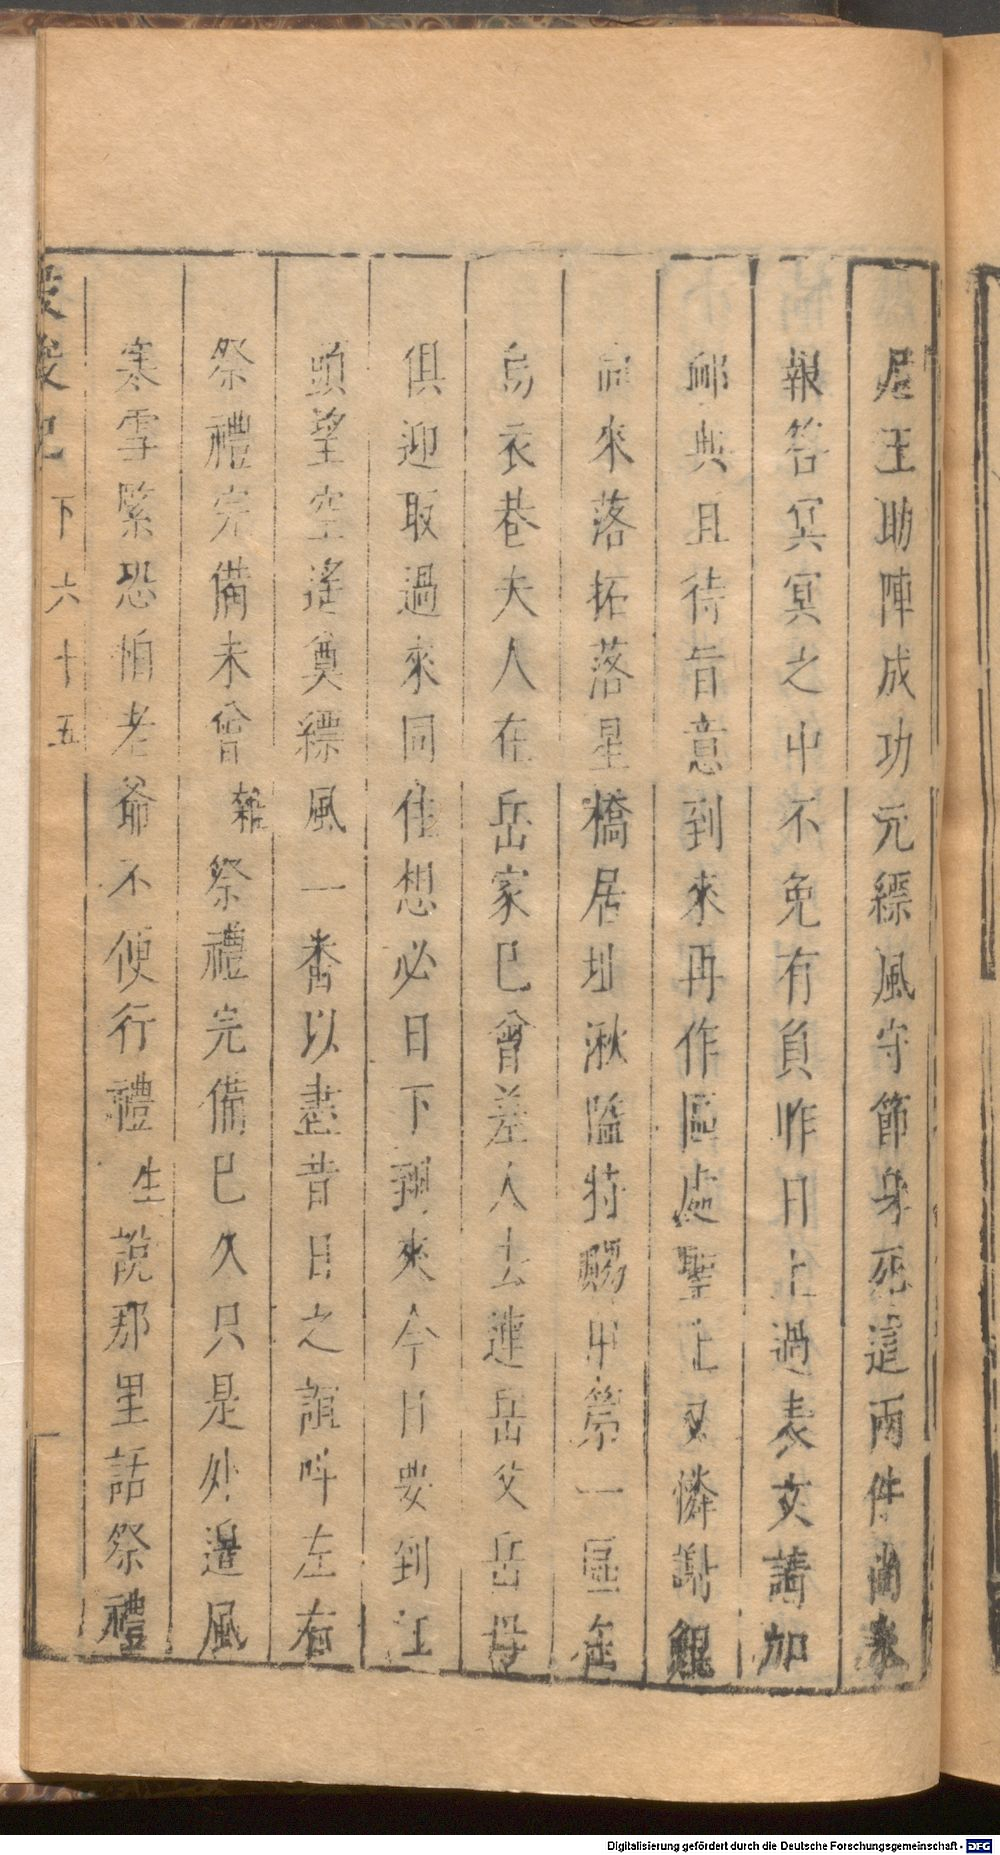 尼王助陣成功元縹風守節身死這兩件尚未
報答冥冥之中不免有負昨日上過表文請加
邮典且待旨意到來再作區處聖上又憐謝鯤
向來落拓落星橋居址湫隘特賜甲第一區在
烏衣巷夫人在岳家已曾差人去連岳父岳母
俱迎取過來同住想必日下到來今日要到江
頭望空遙奠縹風一番以盡昔日之誼叫左右
祭禮完備未曾雜祭禮完備已久只是外邉風
寒雪緊恐怕老爺不便行禮生說那里話祭禮
記 下 六十五
Digitalisierung gefördert durch die Deutsche Forschungsgemeinschaft - DFG